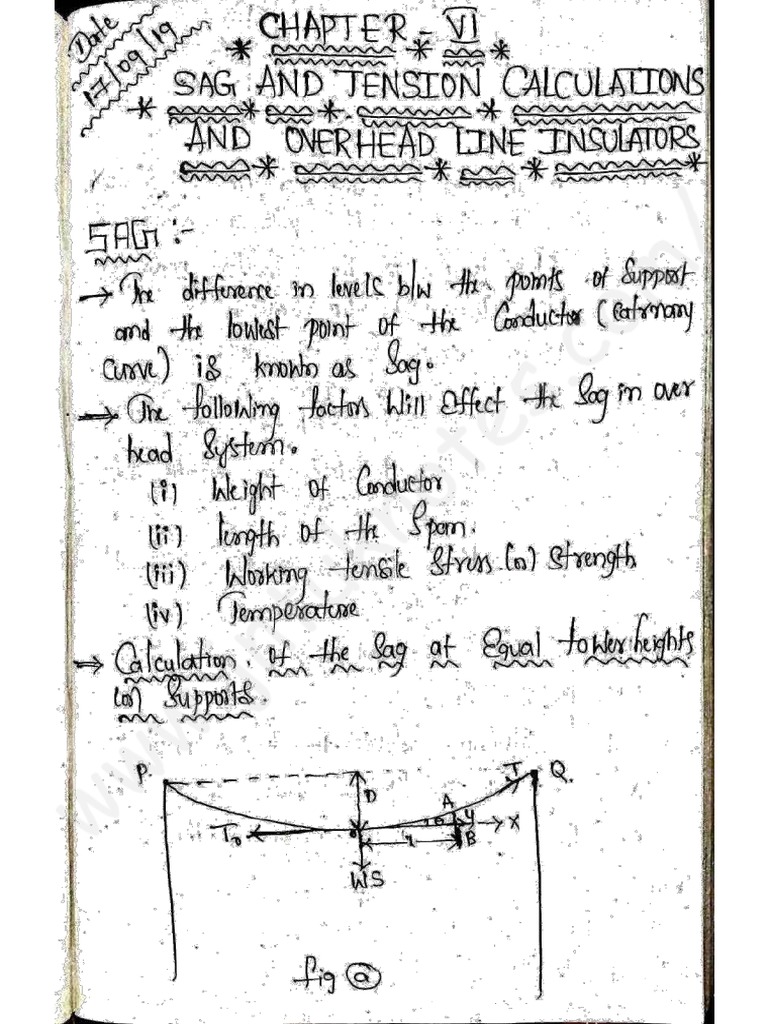 Date
17/09/19
CHAPTER - VI
SAG AND TENSION CALCULATIONS
AND OVERHEAD LINE INSULATORS
SAG :-
→ The difference in levels b/w the points of Support
and the lowest point of the Conductor (Catrnary
Curve) is known as Sag.
→ The following factors Will Effect the Sag in over
head System.
(i) Weight of Conductor
(ii) length of the Span.
(iii) Working tensile Stress (or) Strength
(iv) Temperature
⇒ Calculation of the Sag at Equal tower heights
(or) Supports.
P T Q
D A
T₀ θ y X
x B
WS
fig (a)